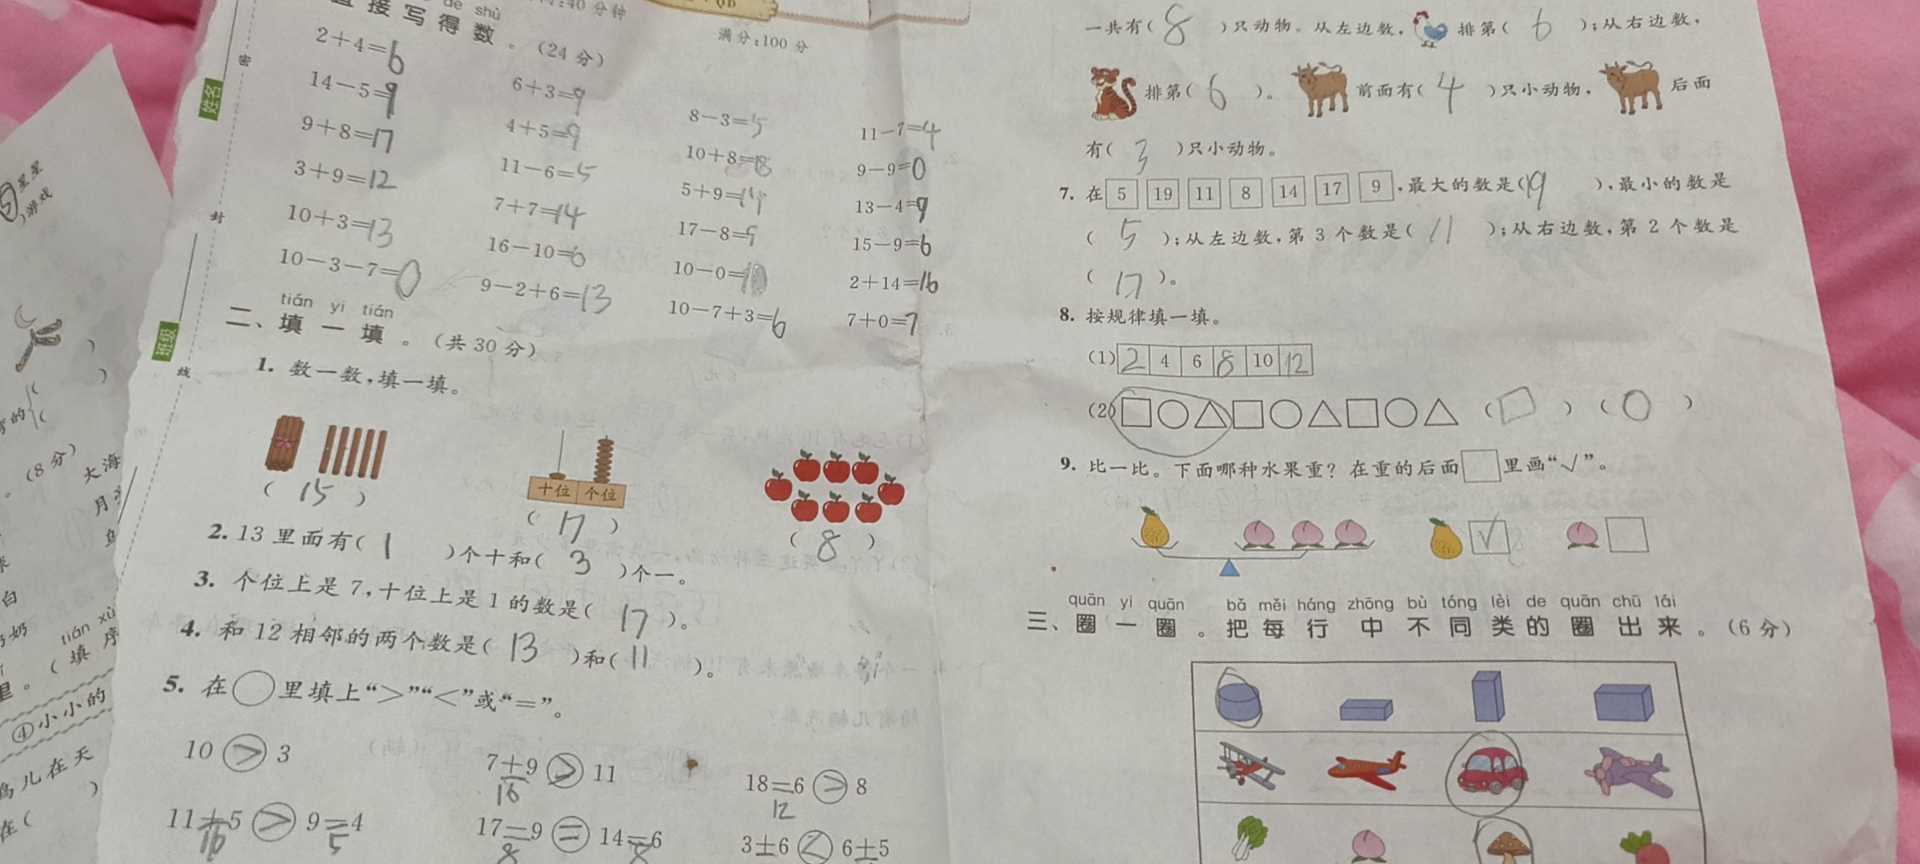 直接写得数。(24分)
满分:100分
2+4=6
14-5=9
6+3=9
9+8=17
4+5=9
8-3=5
11-7=4
3+9=12
11-6=5
10+8=18
9-9=0
10+3=13
7+7=14
5+9=14
13-4=9
10-3-7=0
16-10=6
17-8=9
15-9=6
9-2+6=13
10-0=10
2+14=16
10-7+3=6
7+0=7
tián yi tián
二、填一填。(共30分)
1. 数一数,填一填。
十位 个位
( 15 ) ( 17 ) ( 8 )
2. 13里面有( 1 )个十和( 3 )个一。
3. 个位上是7,十位上是1的数是( 17 )。
4. 和12相邻的两个数是( 13 )和( 11 )。
5. 在○里填上“>”“<”或“=”。
10 > 3 7+9 > 11 18-6 > 8
16 12
11+5 > 9-4 17-9 = 14-6 3+6 < 6+5
16 5 8 8
一共有( 8 )只动物。从左边数, 排第( 6 );从右边数,
排第( 6 )。 前面有( 4 )只小动物, 后面
有( 3 )只小动物。
7. 在 5 19 11 8 14 17 9 ,最大的数是(19 ),最小的数是
( 5 );从左边数,第3个数是( 11 );从右边数,第2个数是
( 17 )。
8. 按规律填一填。
(1) 2 4 6 8 10 12
(2) □○△□○△□○△ ( □ ) ( ○ )
9. 比一比。下面哪种水果重?在重的后面□里画“√”。
√
quān yi quān bǎ měi háng zhōng bù tóng lèi de quān chū lái
三、圈一圈。把每行中不同类的圈出来。(6分)
姓名
班级
密
封
线
星星
游戏
(8分)
大海
白
奶奶
tián xù
(填序
④小小的
鸟儿在天
在(